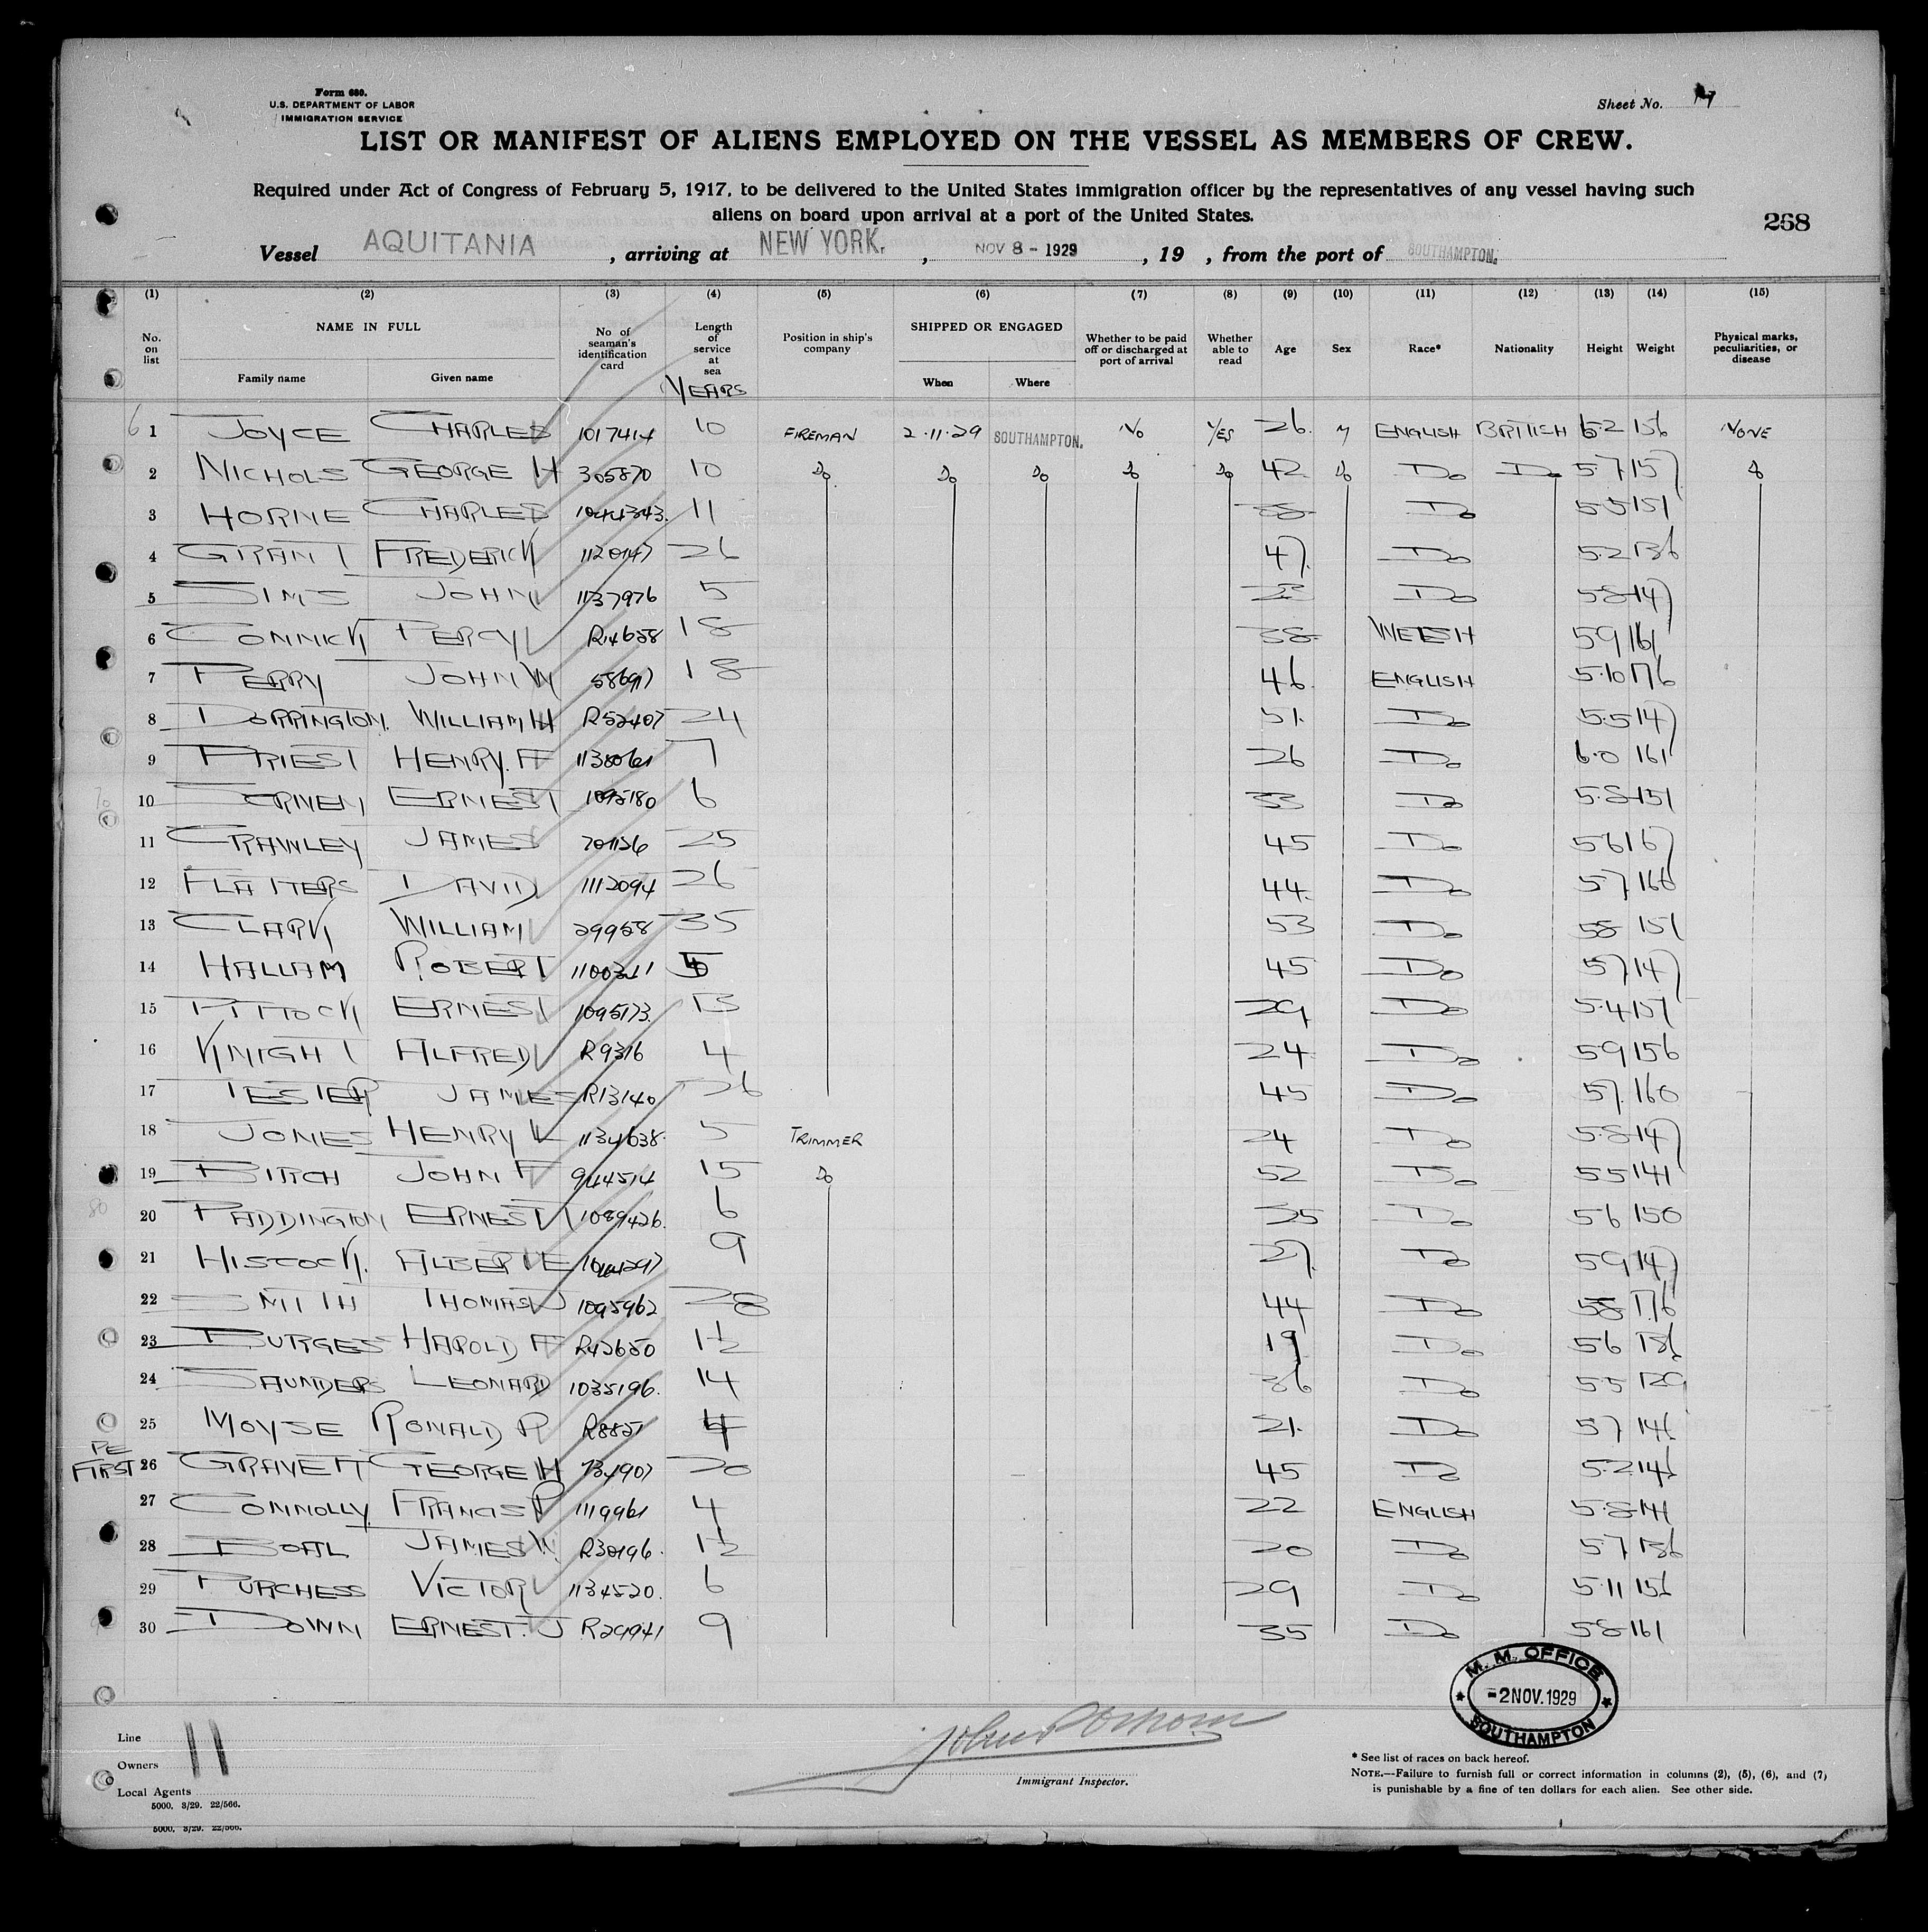 Form 680.
U.S. DEPARTMENT OF LABOR
IMMIGRATION SERVICE
Sheet No.
LIST OR MANIFEST OF ALIENS EMPLOYED ON THE VESSEL AS MEMBERS OF CREW.
Required under Act of Congress of February 5, 1917, to be delivered to the United States immigration officer by the representatives of any vessel having such
aliens on board upon arrival at a port of the United States.
268
Vessel AQUITANIA, arriving at NEW YORK., NOV 8 - 1929, 19 , from the port of SOUTHAMPTON.
(1) (2) (3) (4) (5) (6) (7) (8) (9) (10) (11) (12) (13) (14) (15)
No. on list NAME IN FULL Family name Given name No. of seaman's identification card Length of service at sea YEARS Position in ship's company SHIPPED OR ENGAGED When Where Whether to be paid off or discharged at port of arrival Whether able to read Age Sex Race* Nationality Height Weight Physical marks, peculiarities, or disease
1 JOYCE CHARLES 1017414 10 FIREMAN 2.11.29 SOUTHAMPTON. NO YES 26 M ENGLISH BRITISH 5.2 156 NONE
2 NICHOLS GEORGE H 305870 10 Do Do Do Do Do 42 Do Do Do 5.7 157 Do
3 HORNE CHARLES 1044343. 11 38 Do 5.5 151
4 GRANT FREDERICK 1120147 26 47. Do 5.2 136
5 SIMS JOHN 1137976 5 Do 5.8 147
6 CONNICK PERCY R14658 18 38 WELSH 5 9 161
7 PERRY JOHN W 58697 18 46. ENGLISH 5.10 176
8 DORRINGTON. WILLIAM H R52407 24 51. Do 5.5 147
9 PRIEST HENRY. A 1138061 7 26 Do 6.0 161
10 SCRIVEN ERNEST 1095180 6 33 Do 5.8 151
11 CRAWLEY JAMES 701136 25 45 Do 5 6 167
12 FLATTERS DAVID 1112094 26 44. Do 5 7 166
13 CLARK WILLIAM 29958 35 53 Do 5 8 151
14 HALLAM ROBERT 1100341 5 45 Do 5 7 147
15 PITTOCK ERNEST 1095173. 13 29 Do 5.4 157
16 KNIGHT ALFRED R9316 4 24 Do 5 9 156
17 TESTER JAMES R13140 26 45 Do 5 7. 160
18 JONES HENRY L 1134638. 5 TRIMMER 24 Do 5.8 147
19 BIRCH JOHN F 944514 15 Do 52 Do 5 5 141
20 PADDINGTON ERNEST 1089426. 6 35 Do 5 6 150
21 HISCOCK. ALBERT E 9 27. Do 5 9 147
22 SMITH THOMAS J 1095962 28 44 Do 5 8 176
23 BURGES HAROLD A R42650 1½ 19 Do 5 6 136
24 SAUNDERS LEONARD 1035196. 14 36 Do 5 5 139
25 MOYSE RONALD R R8851 4 21. Do 5 7 146
PE FIRST 26 GRAVETT GEORGE H 734907 20 45 Do 5.2 146
27 CONNOLLY FRANCIS P 1119961 4 22 ENGLISH 5.8 141
28 BOAL JAMES W. R30196. 1½ 20 Do 5 7 136
29 PURCHESS VICTOR 1134520. 6 29 Do 5.11 156
30 DOWN ERNEST. J R29941 9 35 Do 5 8 161
M. M. OFFICE
-2 NOV. 1929
SOUTHAMPTON
Line
Owners 11
Local Agents
5000. 3/29. 22/566.
5000. 3/29. 22/566.
Immigrant Inspector.
* See list of races on back hereof.
NOTE.—Failure to furnish full or correct information in columns (2), (5), (6), and (7)
is punishable by a fine of ten dollars for each alien. See other side.